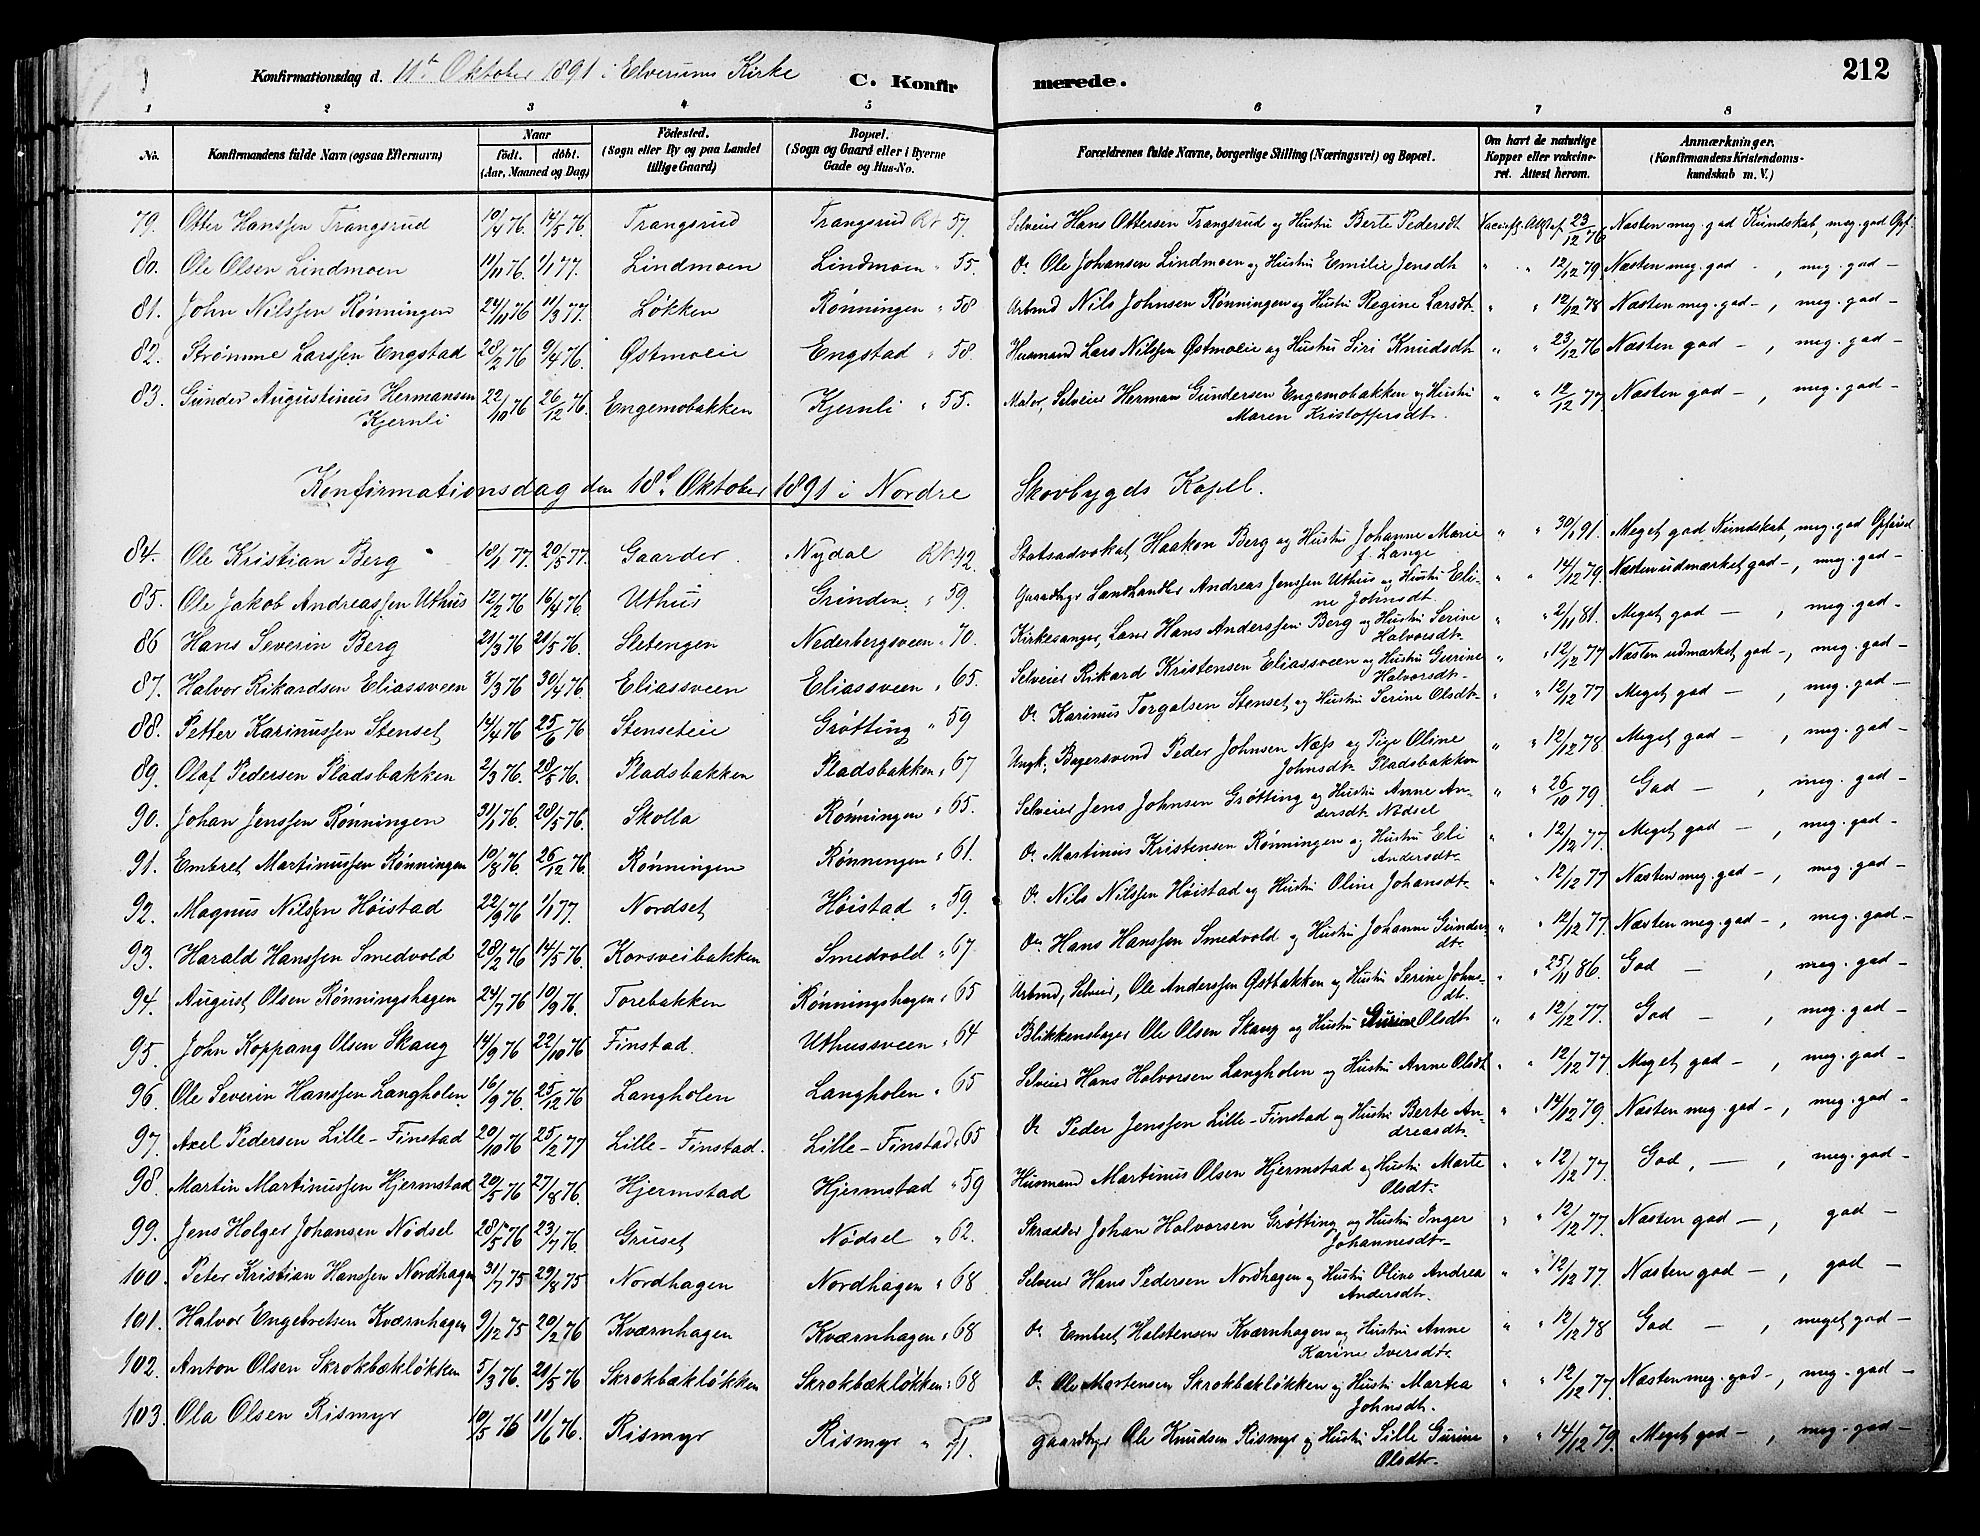 212
Konfirmationsdag d. 11te Oktober 1891 i Elverums Kirke C. Konfirmerede.
1 2 3 4 5 6 7 8
No. Konfirmandens fulde Navn (ogsaa Efternavn) Naar født. døbt. (Aar, Maaned og Dag) Fødested. (Sogn eller By og paa Landet tillige Gaard) Bopæl. (Sogn og Gaard eller i Byerne Gade og Hus-No. Forældrenes fulde Navne, borgerlige Stilling (Næringsvei) og Bopæl. Om havt de naturlige Kopper eller vakcineret. Attest herom. Anmærkninger. (Konfirmandens Kristendomskundskab m. V.)
79. Otter Hanssen Trangsrud 10/4 76. 14/5 76. Trangsrud Trangsrud Rt 57. Selveier Hans Ottersen Trangsrud og Hustru Berte Pedersdt 23/12 76 Næsten meg. god Kundskab, meg. god Opf.
80. Ole Olsen Lindmoen 11/11 76. 1/1 77. Lindmoen Lindmoen " 55. Do Ole Johansen Lindmoen og Hustru Emilie Jensdt " " 12/12 79 Næsten meg. god - , meg. god -
81. John Nilssen Rønningen 24/11 76 11/3 77. Løkken Rønningen " 58 Arbmd Nils Johnsen Rønningen og Hustru Regine Larsdt. " " 12/12 78 Næsten meg. god - , meg. god -
82. Strømme Larssen Engstad 28/2 76 9/4 76. Østmoeie Engstad " 58. Husmand Lars Nilssen Østmoeie og Hustru Siri Knudsdt " " 23/12 76 Næsten god - , meg. god -
83. Gunder Augustinus Hermansen Kjernli 22/10 76 26/12 76. Engemobakken Kjernli " 55. Maler, Selveier Herman Gundersen Engemobakken og Hustru Maren Kristoffersdt. " " 12/12 77. Næsten god - , meg. god -
Konfirmationsdag den 18de Oktober 1891 i Nordre Skovbygds Kapel.
84. Ole Kristian Berg 10/1 77. 20/5 77. Gaarder. Nydal Rt 42. Statsadvokat Haakon Berg og Hustru Johanne Marie f. Lange " " 30/1 91. Meget god Kundskab, meg. god Opførsel
85. Ole Jakob Andreassen Uthus 12/2 76 16/4 76. Uthus Grinden. " 59. Gaardbgr Landhandler Andreas Jenssen Uthus og Hustru Eline Johnsdt. " " 14/12 79. Næsten udmærket god -, meg. god -
86 Hans Severin Berg 21/3 76 21/5 76. Sletengen Nederbergsveen " 70. Kirkesanger, Lærer Hans Anderssen Berg og Hustru Serine Halvorsdt. " " 2/11 81. Meget god - , meg. god -
87. Halvor Rikardsen Eliassveen 3/3 76 30/4 76. Eliassveen Eliassveen " 65. Selveier Rikard Kristensen Eliassveen og Hustru Gurine Halvorsdt. " " 12/12 77 Næsten udmærket god -, meg. god -
88. Petter Karinussen Stenset 14/4 76 25/6 76 Stenseteie Grøtting " 59 Do Karinus Torgalsen Stenset og Hustru Serine Olsdt. " " 12/12 77 Meget god - , meg. god -
89. Olaf Pedersen Pladsbakken 2/3 76. 28/5 76. Pladsbakken Pladsbakken " 67 Ungk. Bagersvend Peder Johnsen Næss og Pige Oline Johnsdt. Pladsbakken " " 12/12 78 Meget god - , meg. god -
90. Johan Jenssen Rønningen 31/1 76. 28/5 76. Skolla Rønningen " 65. Selveier Jens Johnsen Grøtting og Hustru Anne Andersdt. Nødsel " " 26/10 79. God - , meg. god -
91. Embret Martinussen Rønningen 10/8 76. 26/12 76. Rønningen Rønningen " 61. Do Martinus Kristensen Rønningen og Hustru Eli Andersdt. " " 12/12 77. Meget god - , meg. god -
92. Magnus Nilssen Høistad 22/9 76 1/1 77. Nordset Høistad " 59. Do Nils Nilssen Høistad og Hustru Oline Johansdt. " " 12/12 77 Næsten meg. god - , meg. god -
93. Harald Hanssen Smedvold 28/2 76 14/5 76. Korsveibakken Smedvold " 67. Do Hans Hanssen Smedvold og Hustru Johanne Gundersdt. " " 12/12 77. Næsten meg. god -, meg. god -
94. August Olsen Rønningshagen 24/7 76 10/9 76. Torebakken Rønningshagen " 65 Arbmd, Selveier, Ole Anderssen Østbakken og Hustru Serine Johnsdt. " " 25/11 86. God - , meg. god -
95. John Koppang Olsen Skaug 14/9 76 22/10 76 Finstad. Uthussveen " 64 Blikkenslager Ole Olsen Skaug og Hustru Gurine Olsdt. " " 12/12 77. God - , meg. god -
96. Ole Severin Hanssen Langholen. 16/9 76. 25/12 76 Langholen Langholen " 65 Selveier Hans Halvorsen Langholen og Hustru Anne Olsdt " " 12/12 77 Meget god - , meg. god -
97. Axel Pedersen Lille-Finstad 20/10 76 25/2 77 Lille-Finstad. Lille-Finstad " 65 Do Peder Jenssen Lille-Finstad og Hustru Berte Andreasdt. " " 14/12 79. Næsten meg. god -, meg. god -
98. Martin Martinussen Hjermstad 20/5 76 27/8 76. Hjermstad Hjermstad " 59 Husmand Martinus Olsen Hjermstad og Hustru Marte Olsdt. " " 12/12 77. God, - , meg. god -
99. Jens Holger Johansen Nødsel 28/5 76 23/7 76. Gruset Nødsel " 62. Skrædder Johan Halvorsen Grøtting og Hustru Inger Johannesdt. " " 12/12 77. Næsten god - , god -
100. Peter Kristian Hanssen Nordhagen 31/7 75 29/8 75 Nordhagen Nordhagen " 68 Selveier Hans Pedersen Nordhagen og Hustru Oline Andrea Andersdt. " " 12/12 77. Næsten god - , god -
101. Halvor Engebretsen Kværnhagen 9/12 75 20/2 76 Kværnhagen Kværnhagen " 68 Do Embret Halstensen Kværnhagen og Hustru Anne Karine Iversdt. " " 12/12 78 God - , meget god -
102. Anton Olsen Skrokbækløkken 5/3 76. 21/5 76 Skrokbækløkken Skrokbækløkken " 68 Do Ole Mortensen Skrokbækløkken og Hustru Martea Johnsdt. " " 12/12 77. Næsten meg. god -, meg. god -
103. Ola Olsen Rismyr 10/5 76 11/6 76. Rismyr Rismyr " 71. Gaardbgr Ole Knudsen Rismyr og Hustru Sille Gurine Olsdt. " " 14/12 79. Meget god - , meg. god -